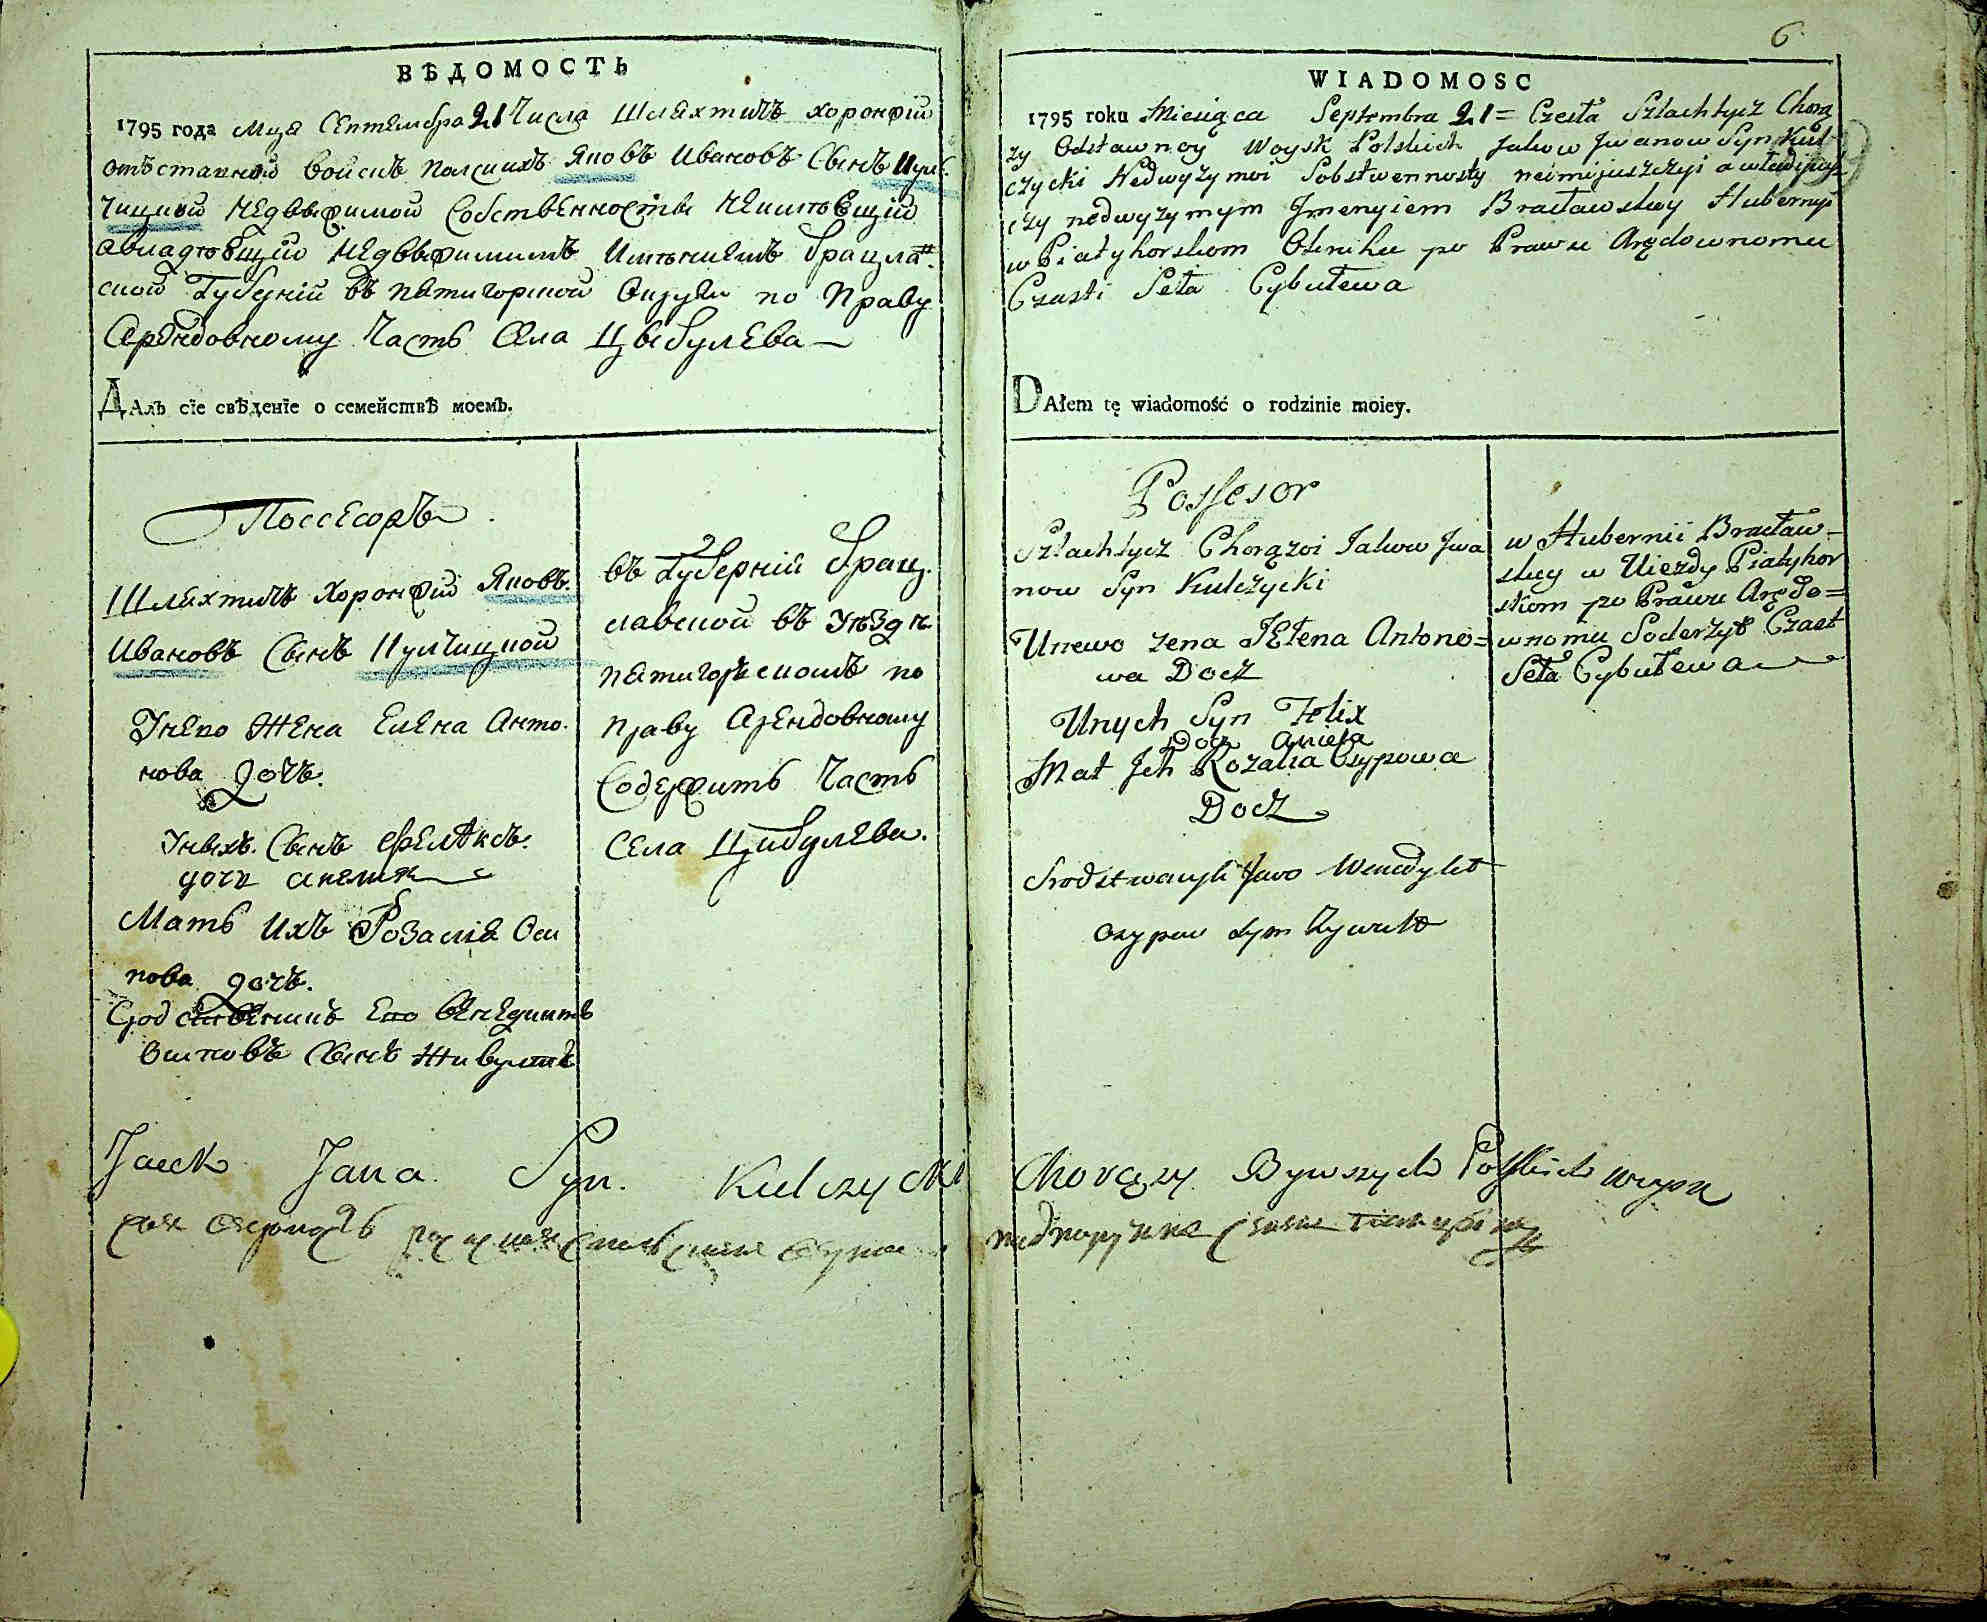 ВѢДОМОСТЬ
1795 года Мца Септемвра 21 Числа Шляхтичъ хоронжiй
отъставной войскъ полскихъ Яковъ Ивановъ Сынъ Кул-
чицкой недвыжимой собственности неимѣющiй
авладѣющiй недвыжимимъ имѣниемъ брацла-
ской Губернiй въ пятигорской округи по праву
Арендовному Часть Села Цыбулева
Далъ сïе свѣденïе о семействѣ моемъ.
Поссесоръ
Шляхтичъ хоронжiй Яковъ
Ивановъ Сынъ Кулчицкой
Унего жена Елена Анто-
нова дочъ.
Уныхъ Сынъ Феликсъ.
дочи Анеля
Мать ихъ Розалiя Оси
пова дочъ.
Сродственикъ Его Венедиктъ
Осиповъ Сынъ Живулть
въ Губернiй брац-
лавской въ уѣздѣ
пятигоръскомъ по
праву Арендовному
Содержитъ Часть
Села Цибулева.
Jacek Jana Syn. Kulczycki
6.
WIADOMOSC
1795 roku Miesiąca Septembra 21 = Czesła Szlachtycz Chorą
ży Odstawnoy Woysk Polskich Jakow Jwanow Syn Kul
czycki Nedwyzymoi Sobstwennosty neimijuszczyi awładijusz
czy nedwyzymym Jmenyiem Bracławskoy Hubernyi
w Piatyhorskom Okruhu po Prawu Arędownomu
Czasti Seła Cybulewa
DAłem tę wiadomość o rodzinie moiey.
Possesor
Szlachtycz Chorązoi Jakow Jwa
now Syn Kulczycki
Unewo zena JEłena Antono=
wa Docz
Unych Syn Felix
Docz Anieła
Mat Jch Rozalia Osypowa
Docz
Srodstwenyk Jewo Wenedykt
Osypow Syn Zywult
w Hubernii Bracław-
skoy w Uiezdy Piatyhor
skom po Prawu Arędo=
wnomu Soderżyt Czast
Seła Cybulewa
Chorązy Bywszych Polskich woysk